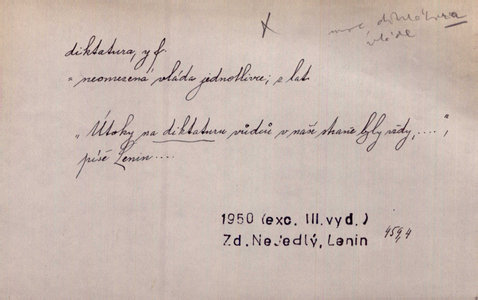 moc, diktátora
vládc
diktatura, y f.
= neomezená vláda jednotlivce; z lat.
„Útoky na diktaturu vůdců v naší straně byly vždy, ....",
píše Lenin....
1950 (exc. III. vyd.)
Zd. Nejedlý, Lenin 459,4